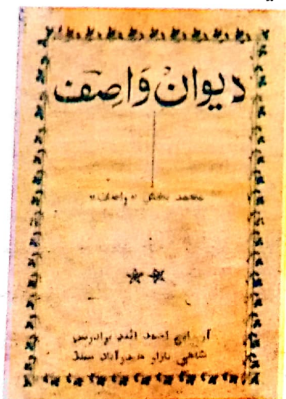 ديوان واصف
محمد بخش «واصف»
آر ايڇ احمد ائنڊ برادرس
شاهي بازار حيدرآباد سنڌ